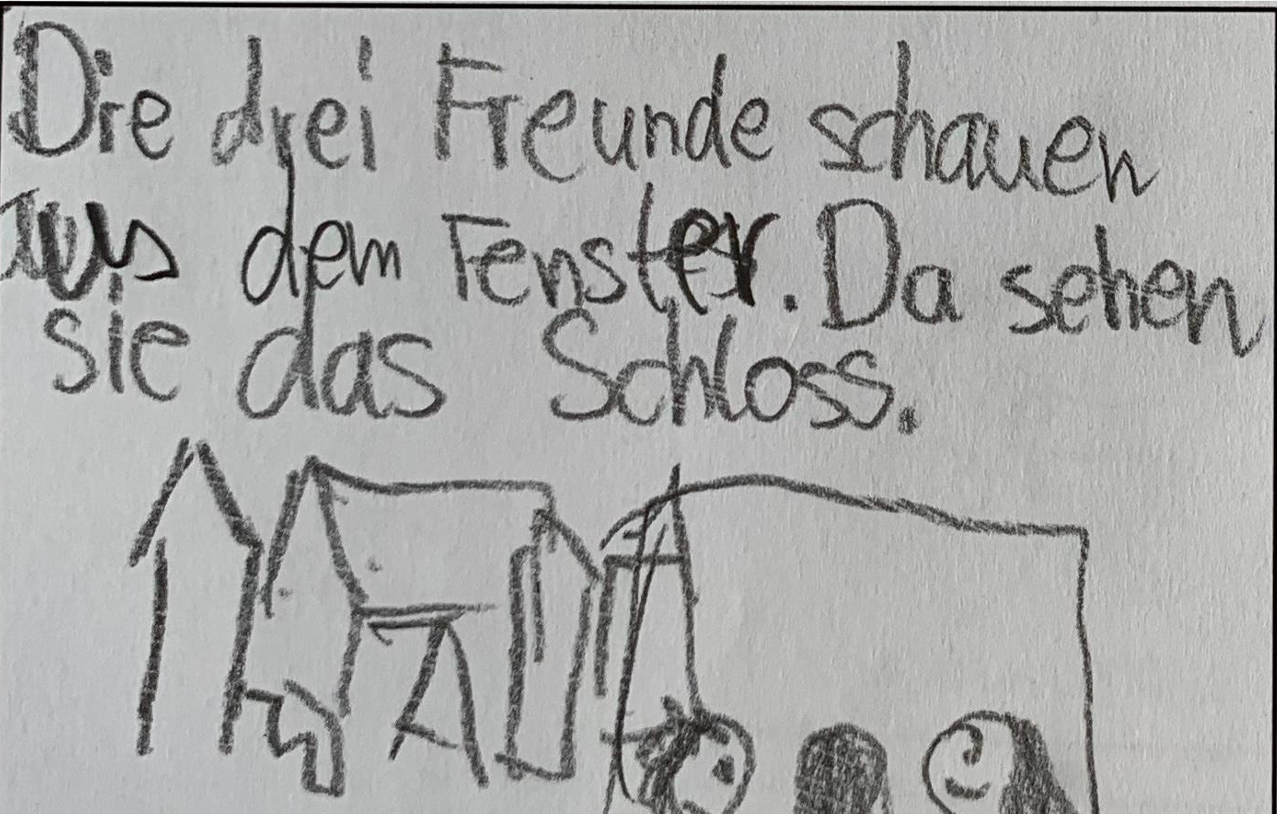 Die drei Freunde schauen
aus dem Fenster. Da sehen
sie das Schloss.